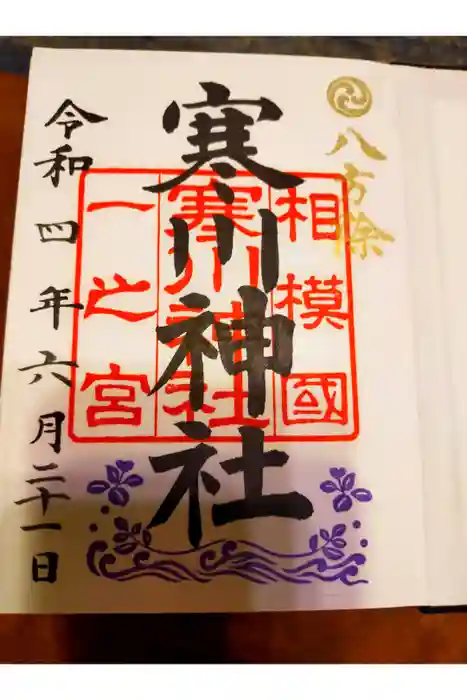 八方除
相模國
寒川神社
一之宮
寒川神社
令和四年六月二十一日